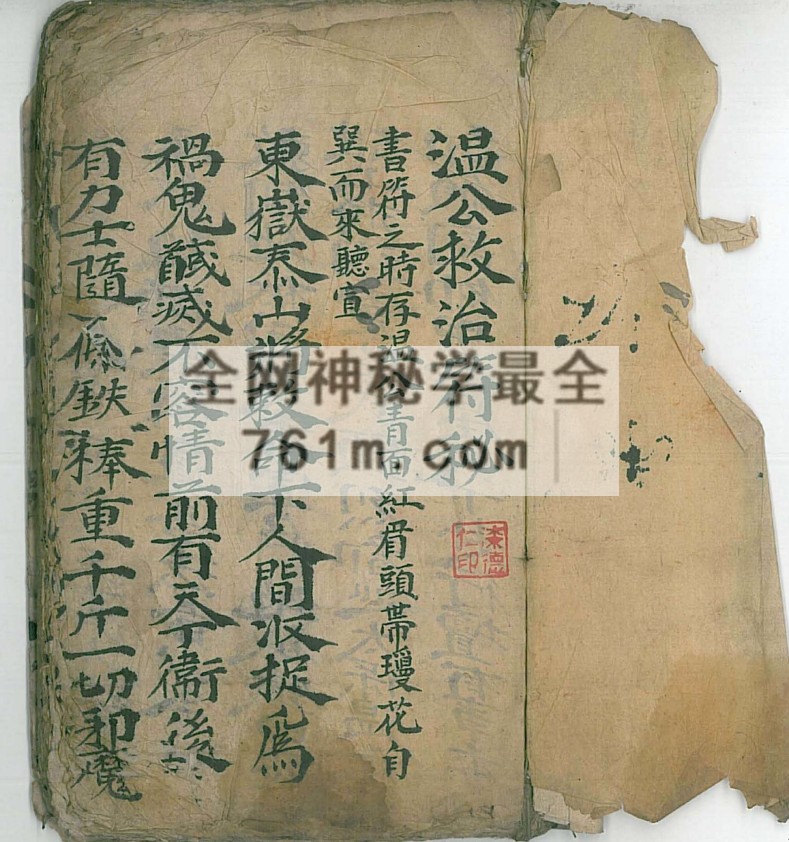 温公救治符秘
書符之時存温公青面紅眉頭帶瓊花自
巽而來聽宣
東嶽泰山將救命下人間収捉為
禍鬼馘滅不容情前有天丁衞後
有力士隨一條鉄棒重千斤一切邪魔
全网神秘学最全
761m.com
德
仁印